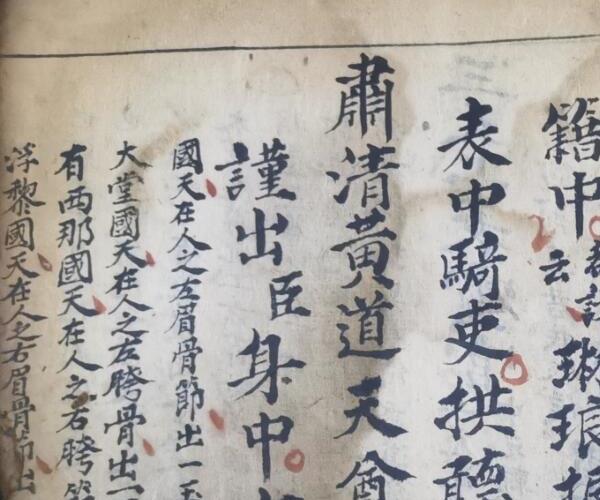 籍中
君訣
云
琳琅振
表中騎吏拱聽
肅清黃道天
謹出臣身中
國天在人之左眉骨節出一玉
大堂國天在人之左胯骨出一
有西那國天在人之右胯
浮黎國天在人之右眉骨節出